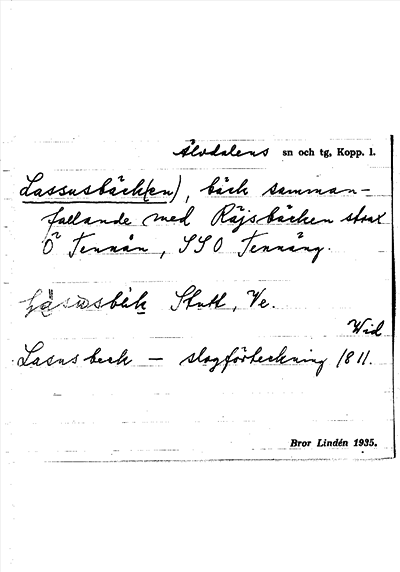 Älvdalens sn och tg, Kopp. l.
Lassusbäck(en), bäck samman-
fallande med Räjsbäcken strax
Ö Tennån, SSO Tennäng.
Stutt, Ve.
Wid
Lasus beck – slogförteckning 1811.
Bror Lindén 1935.